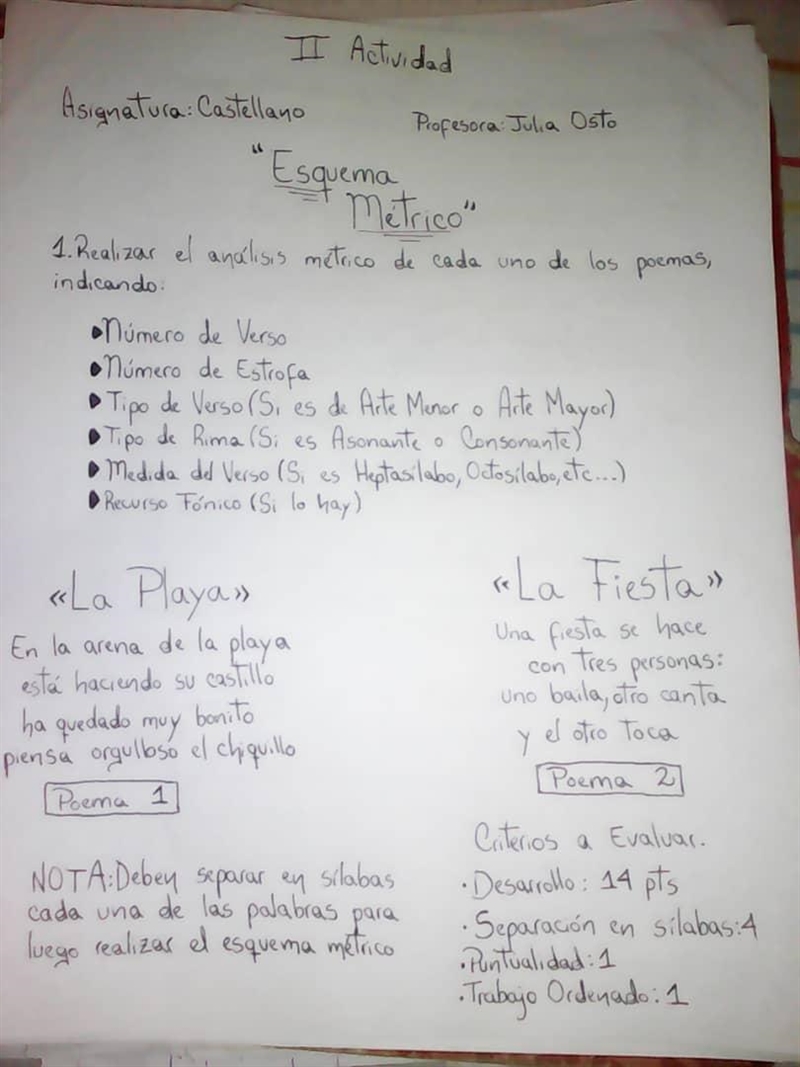 II Actividad
Asignatura: Castellano
Profesora: Julia Osto
"Esquema
Métrico"
1. Realizar el análisis métrico de cada uno de los poemas,
indicando:
Número de Verso
Número de Estrofa
Tipo de Verso (Si es de Arte Menor o Arte Mayor)
Tipo de Rima (Si es Asonante o Consonante)
Medida del Verso (Si es Heptasílabo, Octosílabo, etc...)
Recurso Fónico (Si lo hay)
«La Playa»
En la arena de la playa
está haciendo su castillo
ha quedado muy bonito
piensa orgulloso el chiquillo
Poema 1
NOTA: Deben separar en sílabas
cada una de las palabras para
luego realizar el esquema métrico
«La Fiesta»
Una fiesta se hace
con tres personas:
uno baila, otro canta
y el otro toca
Poema 2
Criterios a Evaluar.
· Desarrollo: 14 pts
· Separación en sílabas: 4
· Puntualidad: 1
· Trabajo Ordenado: 1